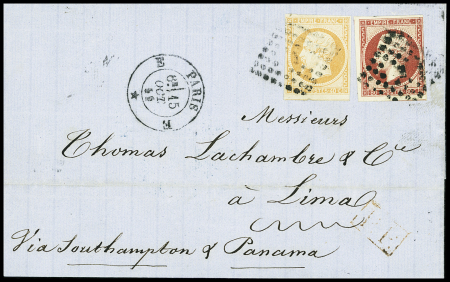 EMPIRE FRANC
EMPIRE FRANC
PARIS
E
OCT
E
Messieurs
Thomas Lachambre & Cie
à Lima
Via Southampton & Panama